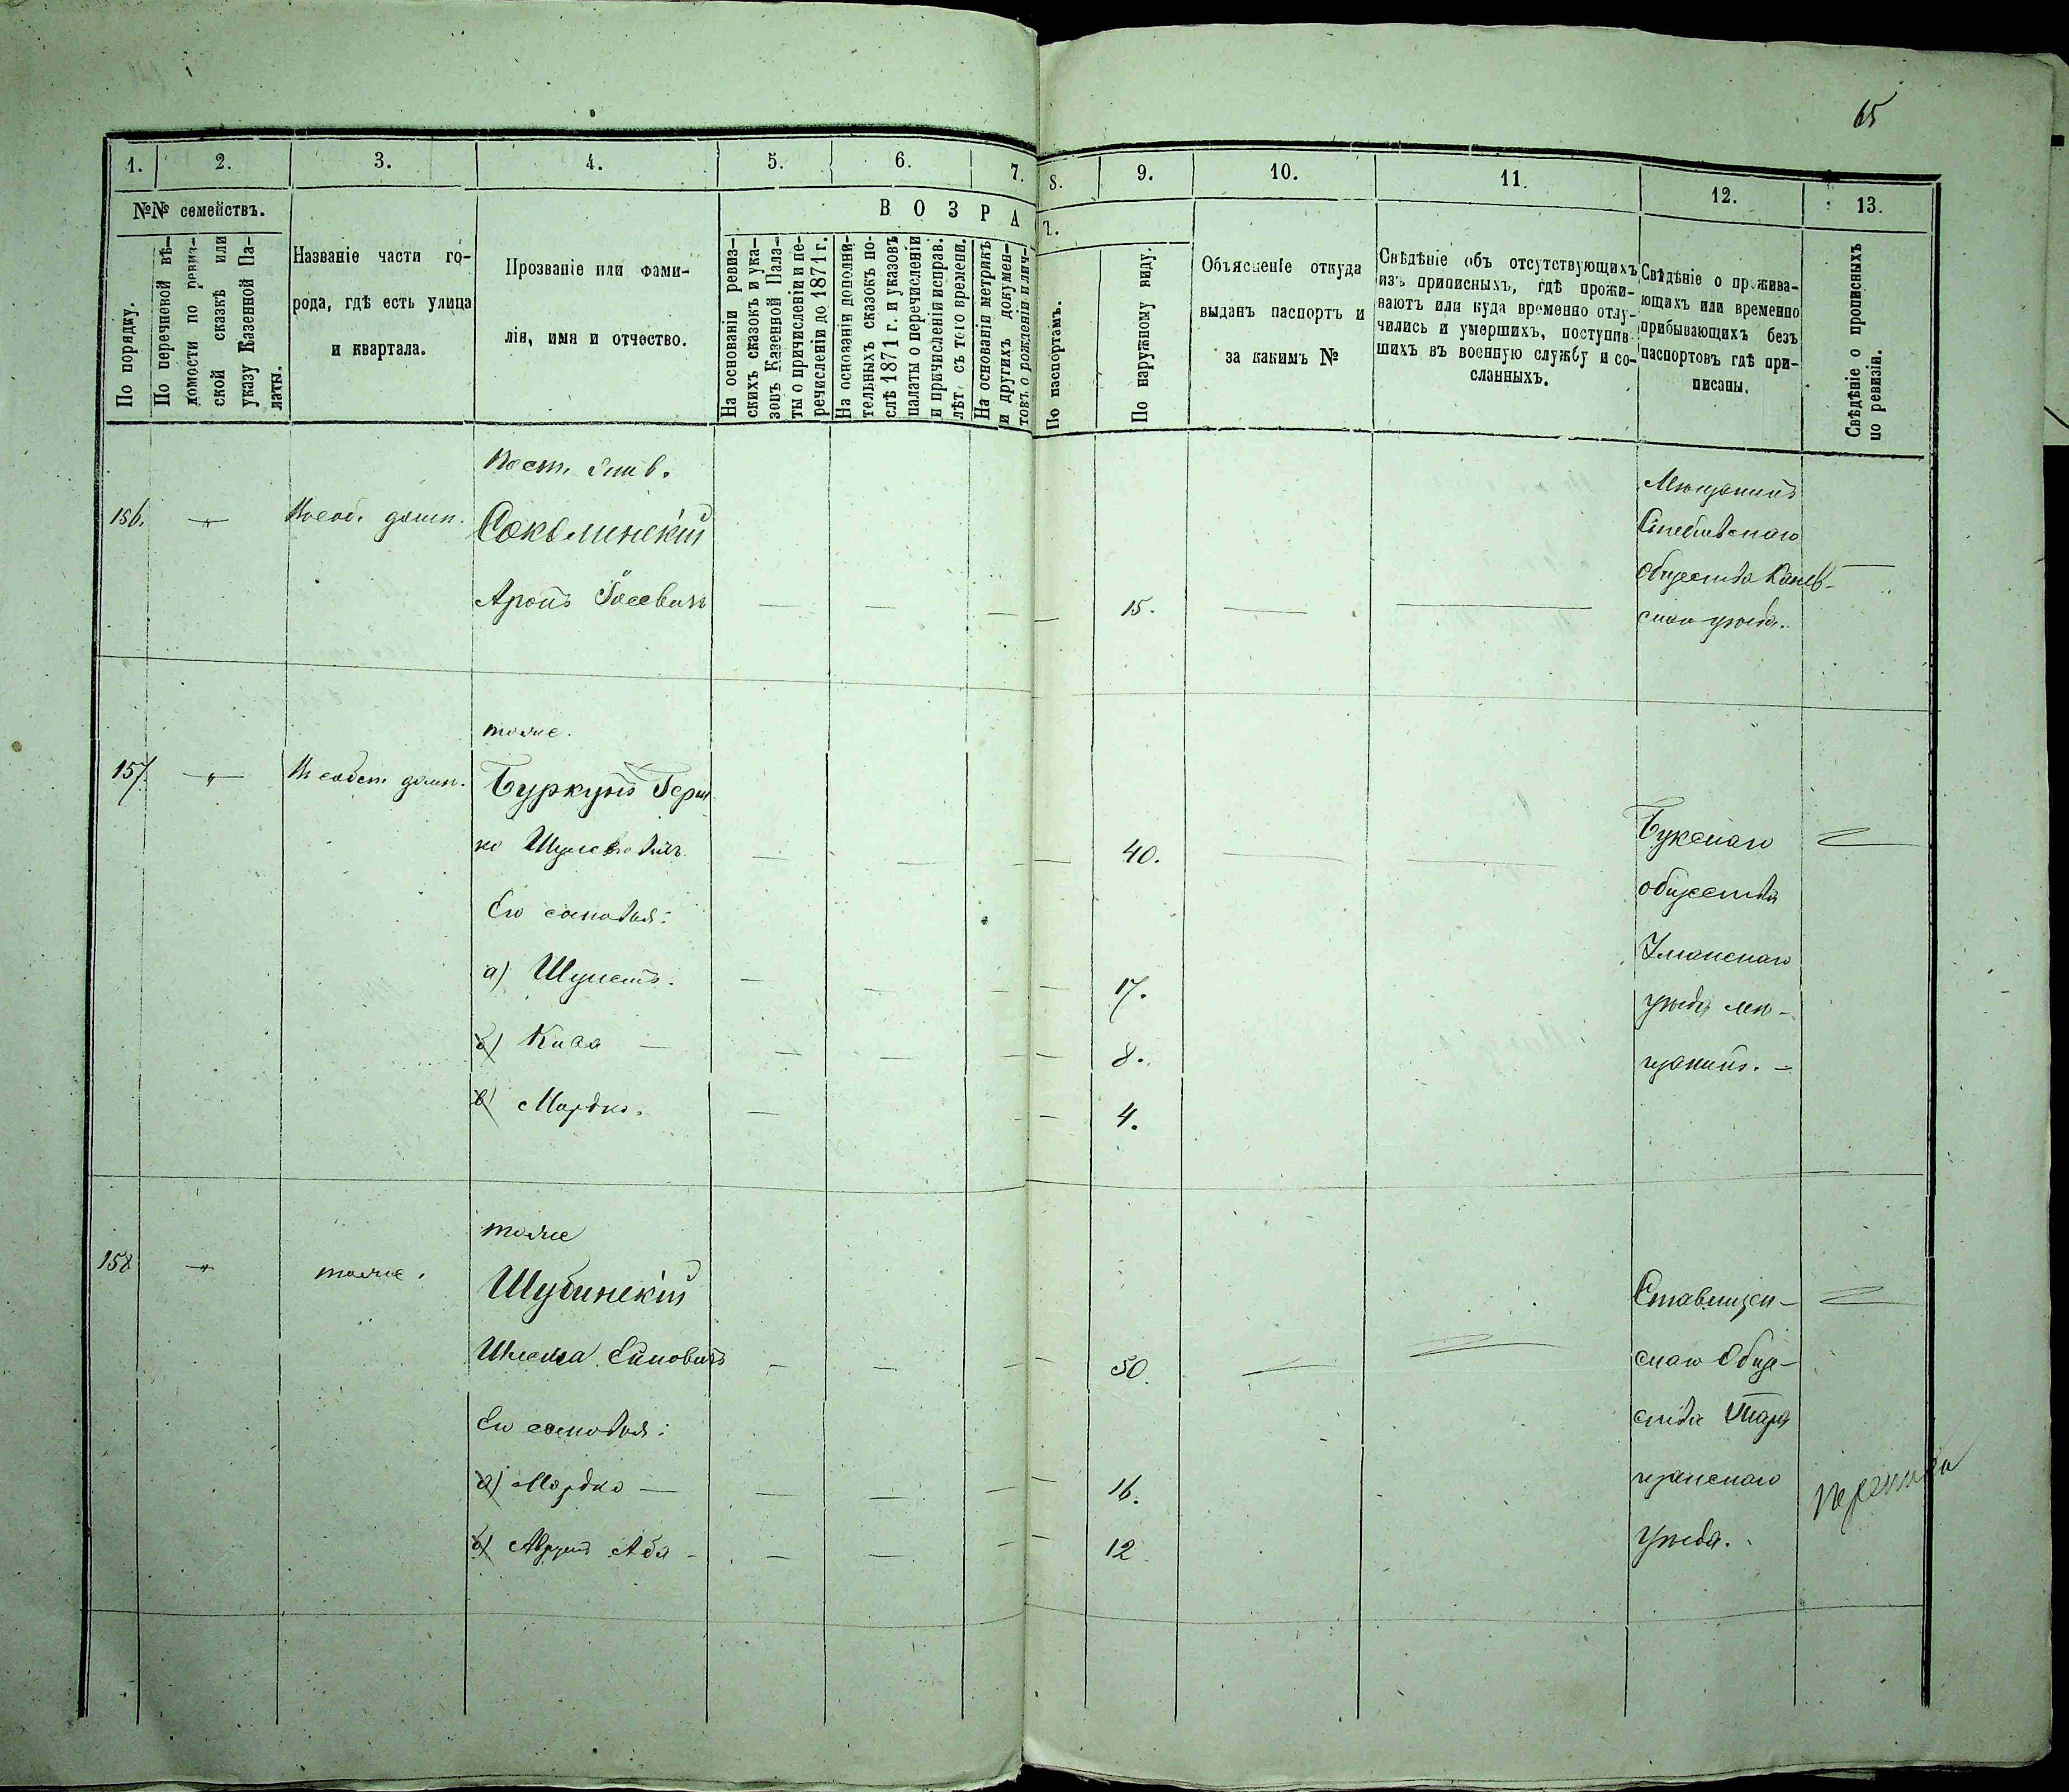 65
1. 2. 3. 4. 5. 6. 7. 8. 9. 10. 11. 12. 13.
№№ семействъ.
По порядку.
По перечневой вѣ-
домости по ревиз-
ской сказкѣ или
указу Казенной Па-
латы.
Названіе части го-
рода, гдѣ есть улица
и квартала.
Прозваніе или фами-
лія, имя и отчество.
ВОЗРА
Т.
На основаніи ревиз-
скихъ сказокъ и ука-
зовъ Казенной Пала-
ты о причисленіи и пе-
речисленіи до 1871 г.
На основаніи дополни-
тельныхъ сказокъ по-
слѣ 1871 г. и указовъ
палаты о перечисленіи
и причисленіи исправ.
лѣт. съ того времени.
На основаніи метрикъ
и другихъ докумен-
товъ о рожденіи и лич-
По паспортамъ.
По наружному виду.
Объясненіе откуда
выданъ паспортъ и
за какимъ №
Свѣдѣніе объ отсутствующихъ
изъ приписныхъ, гдѣ прожи-
ваютъ или куда временно отлу-
чились и умершихъ, поступив-
шихъ въ военную службу и со-
сланныхъ.
Свѣдѣніе о прожива-
ющихъ или временно
прибывающихъ безъ
паспортовъ гдѣ при-
писаны.
Свѣдѣніе о прописныхъ
по ревизіи.
156. Соколинскій
Аронъ Іосевичъ 15.
Мѣщанинъ
общества Канев-
скаго уѣзда.
тоже.
157. Буркунъ Герш
ко Шулемовичъ 40.
Его сыновья:
а) Шулемъ. 17.
б) Кива 8.
в) Мордко. 4.
Букскаго
общества
Уманскаго
уѣзда мѣ-
щанинъ.
тоже
158 тоже. Шубинскій
50.
Его сыновья:
а) Мордко 16.
б) Аба 12
Ставищен-
скаго обще-
ства Тара
щанскаго
уѣзда.